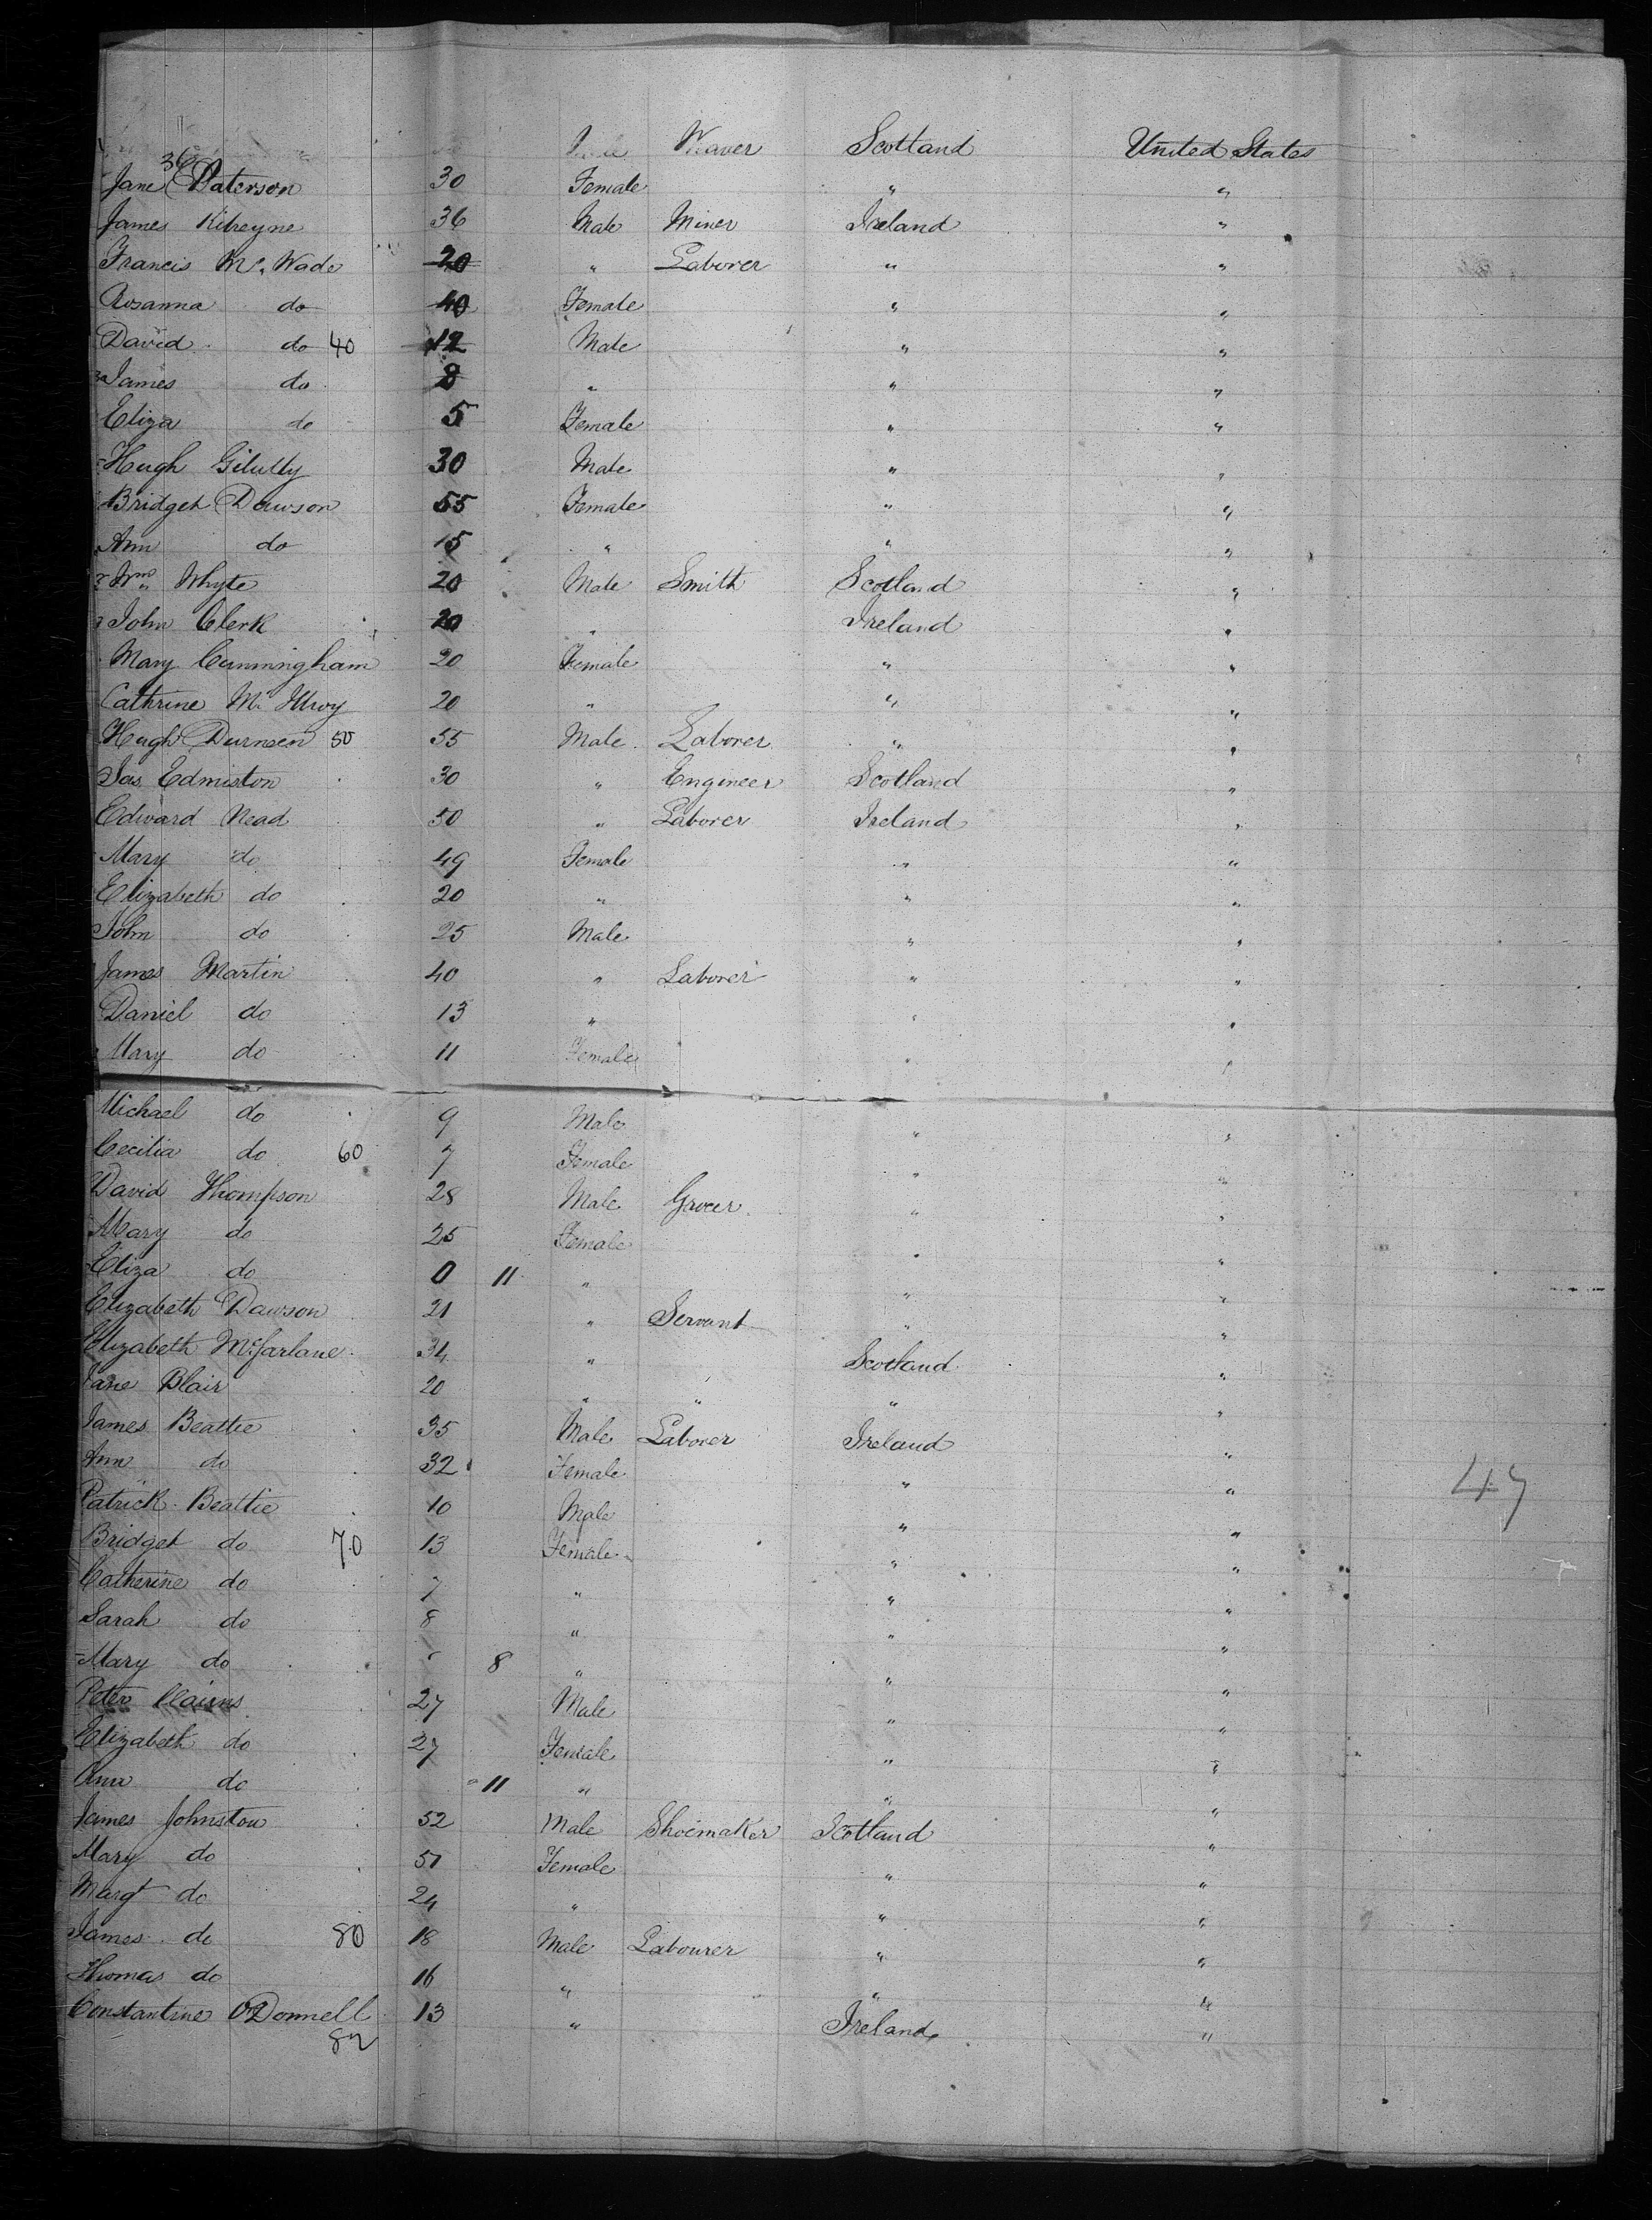 Weaver Scotland United States
36
Jane Paterson 30 Female " "
James Kilreyne 36 Male Miner Ireland "
Francis Mc. Wade 20 " Laborer " "
Rosanna do 40 Female " "
David do 40 12 Male " "
James do 8 " " "
Eliza do 5 Female " "
Hugh Gilully 30 Male " "
Bridget Dawson 55 Female " "
Ann do 15 " " "
Wm Whyte 20 Male Smith Scotland "
John Clerk 20 " Ireland "
Mary Cunningham 20 Female " "
Cathrine Mc Ilroy 20 " " "
Hugh Durneen 50 55 Male Laborer " "
Jas Edmiston 30 " Engineer Scotland "
Edward Nead 50 " Laborer Ireland "
Mary do 49 Female " "
Elizabeth do 20 " " "
John do 25 Male " "
James Martin 40 " Laborer " "
Daniel do 13 " " "
Mary do 11 Female " "
Michael do 9 Male " "
Cecilia do 60 7 Female " "
David Thompson 28 Male Grocer " "
Mary do 25 Female " "
Eliza do 0 11 " " "
Elizabeth Dawson 21 " Servant " "
Elizabeth McFarlane 34 " Scotland "
Jane Blair 20 " " " "
James Beattie 35 Male Laborer Ireland "
Ann do 32 Female " "
Patrick Beattie 10 Male " " 47
Bridget do 70 13 Female " "
Catherine do 7 " " "
Sarah do 8 " " "
Mary do 8 " " "
Peter 27 Male " "
Elizabeth do 27 Female " "
Ann do 11 " " "
James Johnston 52 Male Shoemaker Scotland "
Mary do 51 Female " "
Margt do 24 " " "
James do 80 18 Male Labourer " "
Thomas do 16 " " "
Constantine O'Donnell 13 " Ireland "
82